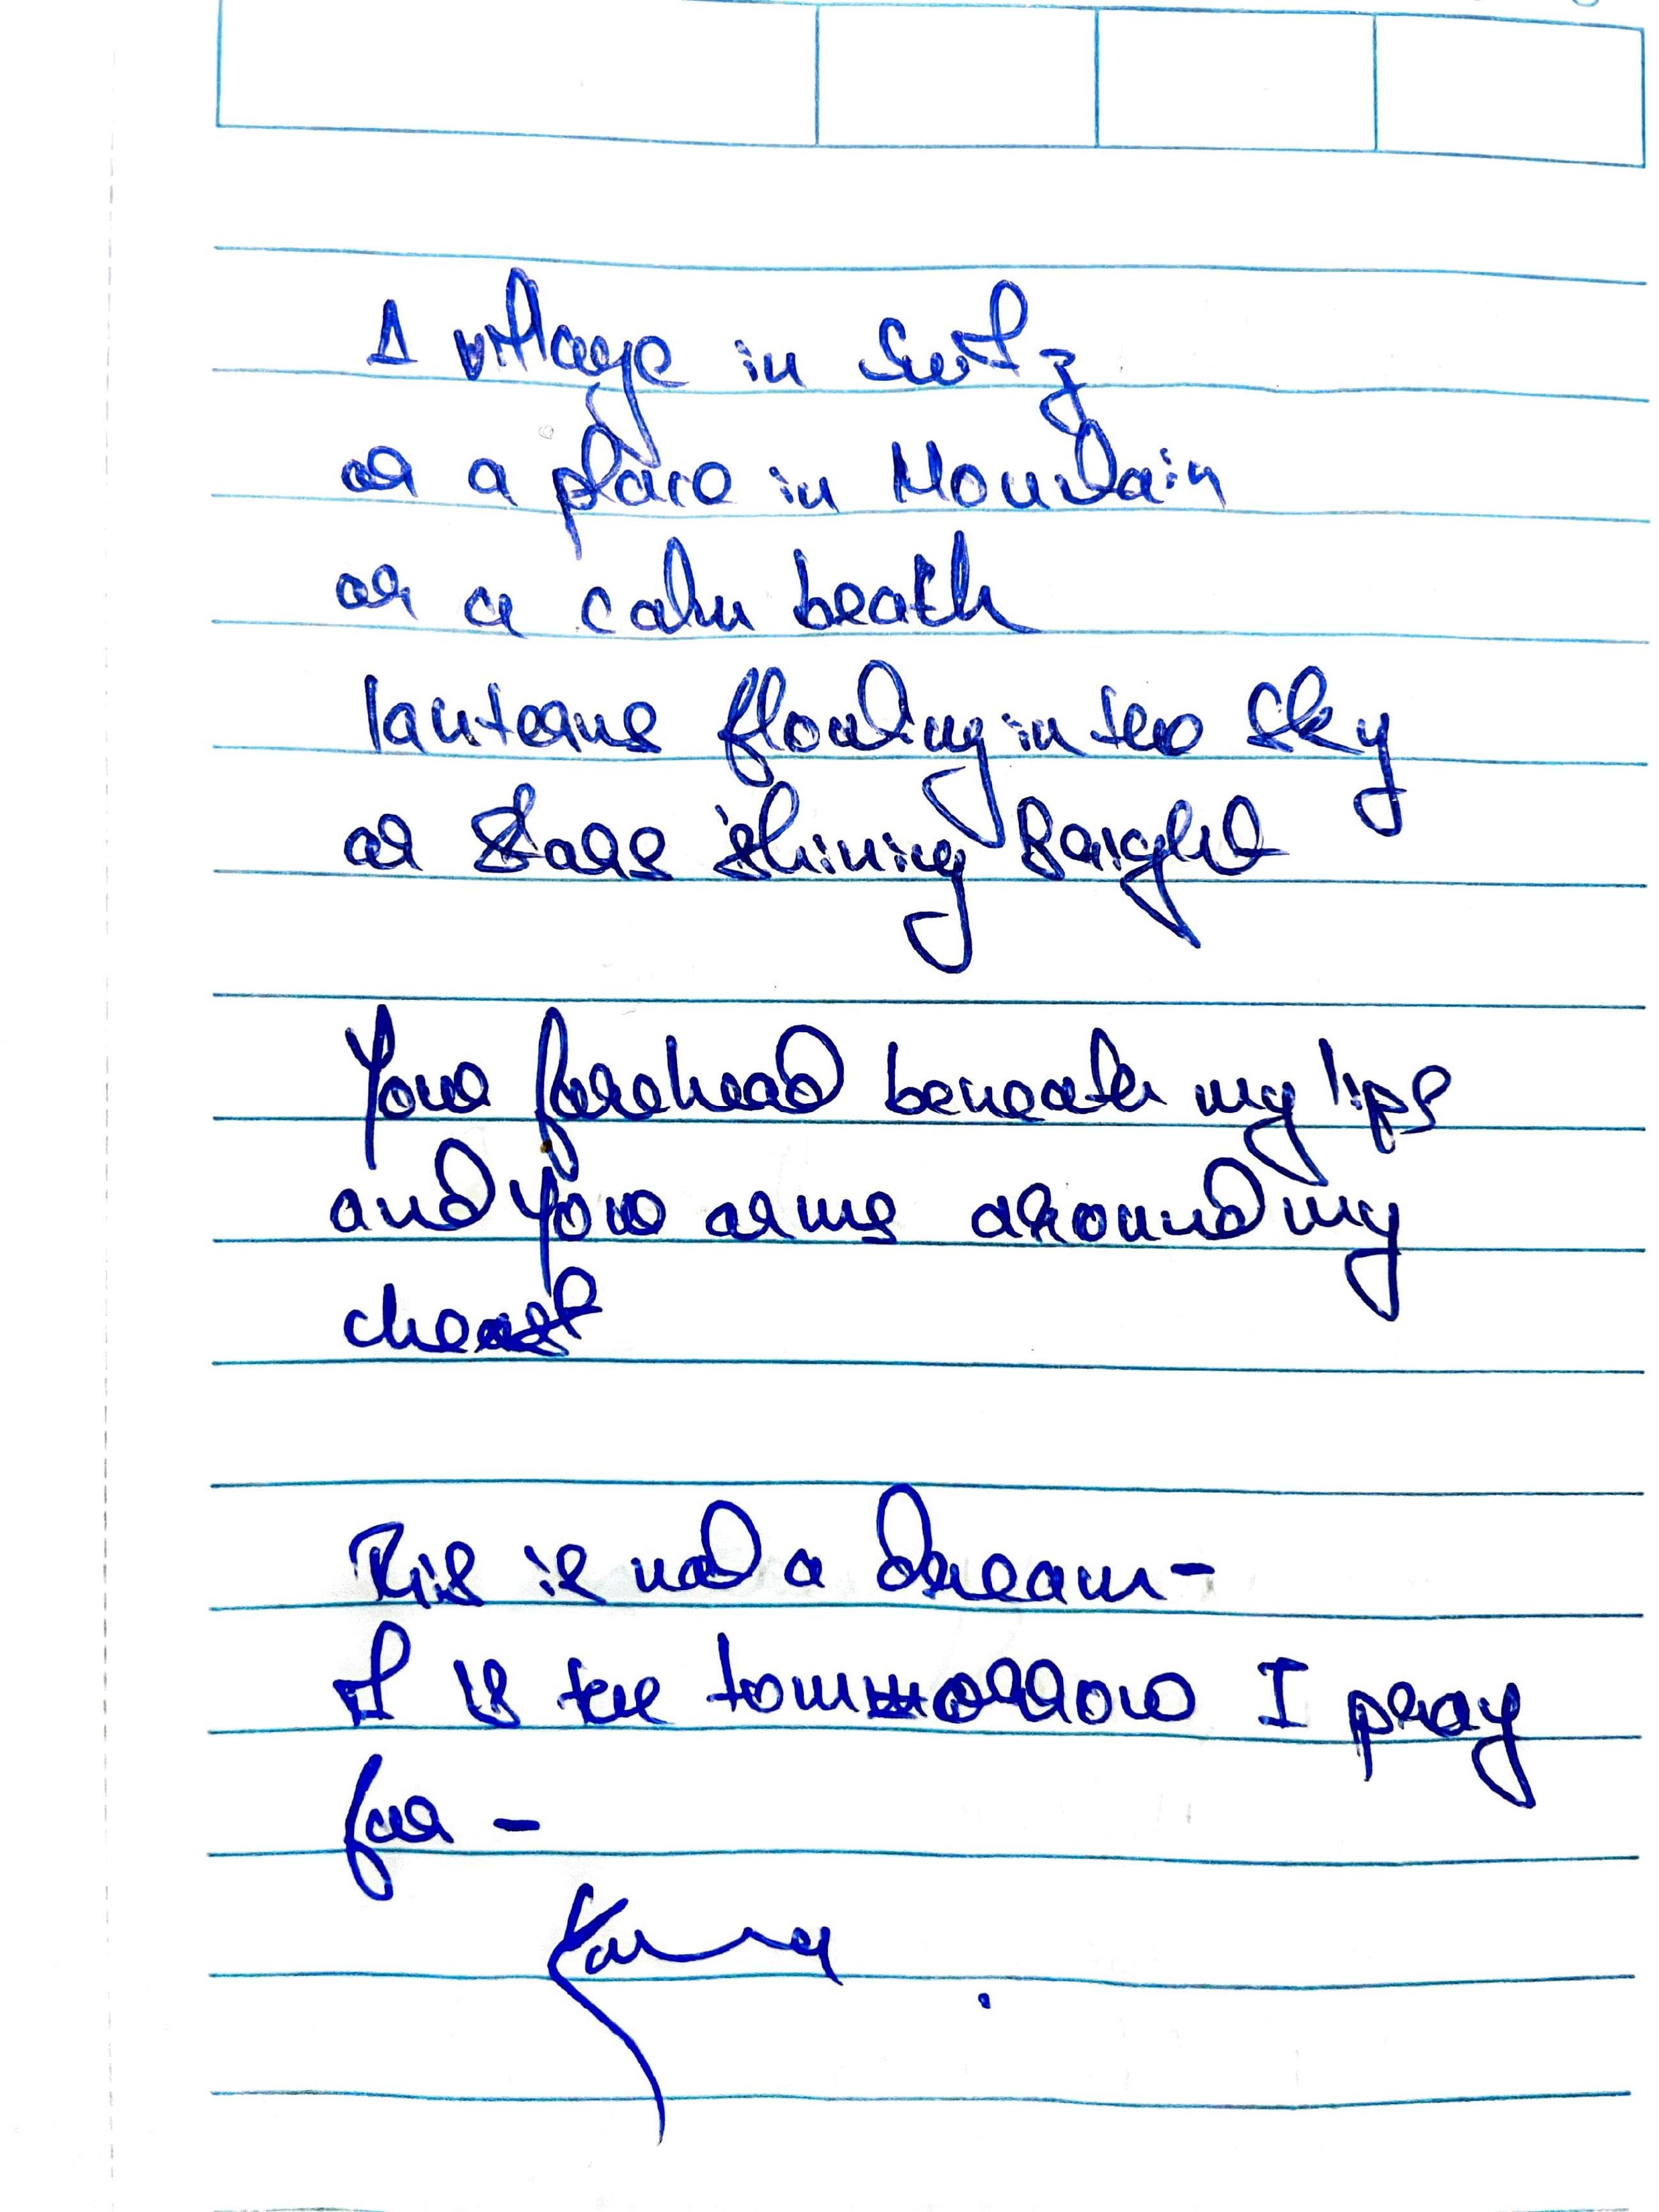 A village in Switz
or a place in Mountain
or a calm beach
lanterns floating in the sky
or stars shining Bright
Your forehead beneath my lips
and your arms around my
chest
This is not a dream-
It is the tommorrow I pray
for -